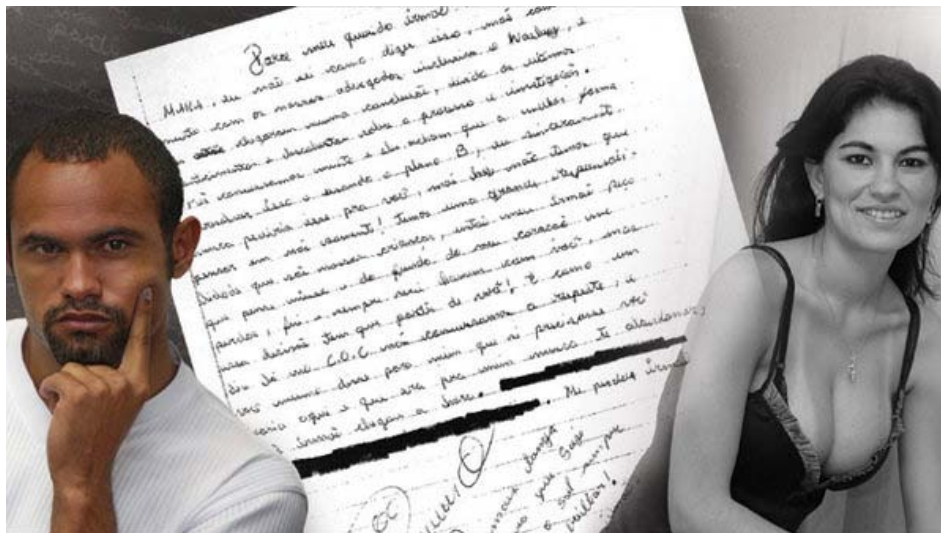 Para meu querido irmão
MAKA, eu não sei como dizer isso, mas conv
muito com os nossos advogados inclusive o Wasley, e
chegaram numa conclusão, devido as ultimas
e descobertas sobre o processo e investigação.
Nós conversamos muito e eles acham que a melhor forma
resolver isso é usando o plano B, eu sinceramente
nunca pediria isso pra você, mas hoje não temos que
pensar em nós somente! Temos uma grande responsabi-
lidade que são nossas crianças, então meu irmão peço
que pense nisso e do fundo do seu coração me
perdoe, fui e sempre serei homem com você, mas
essa decisão tem que partir de você! E como um
dia lá no C.O.C. nós conversamos a respeito, e
você mesmo disse pra mim que se precisasse você
ficaria aqui e que era pra mim nunca te abandonar,
irmão chegou a hora.
Me perdoe irmão